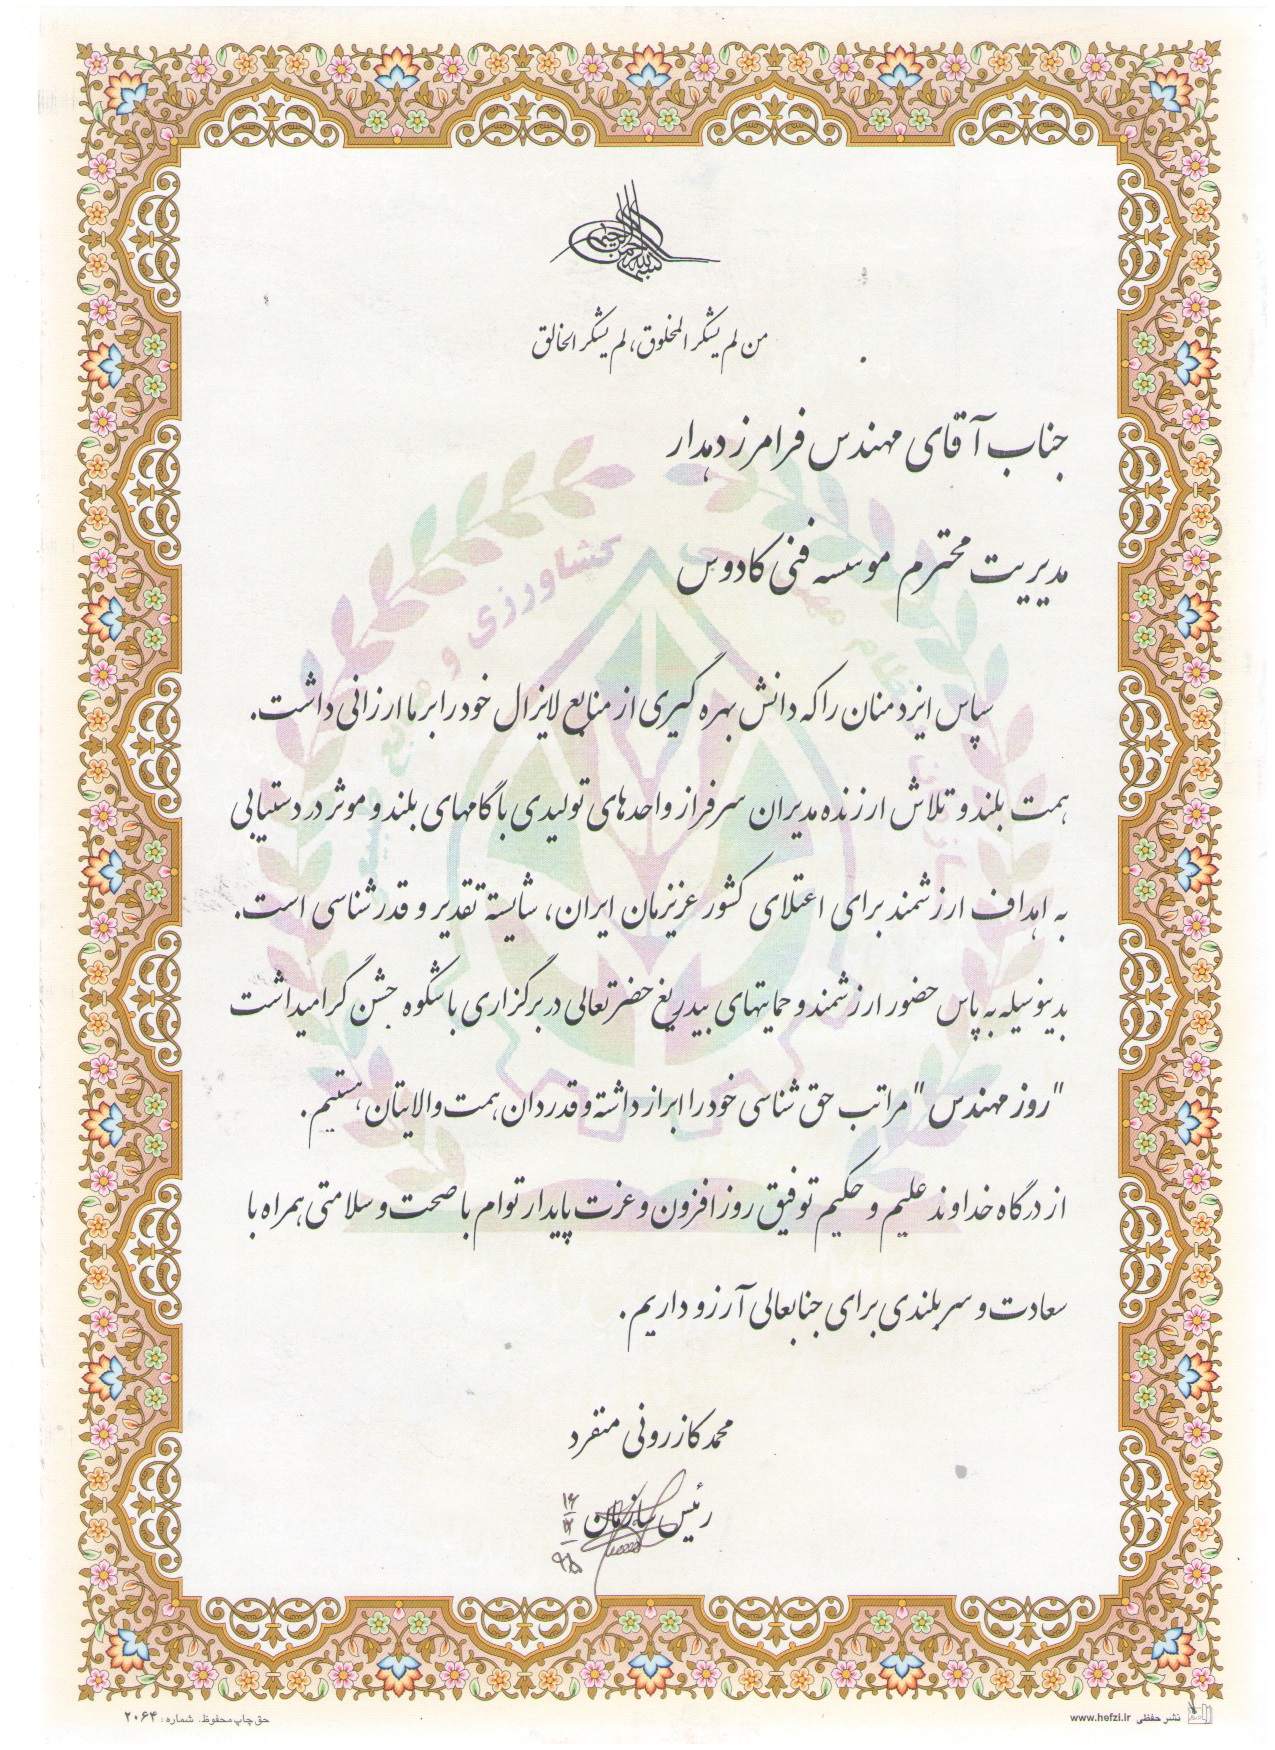 بسم الله الرحمن الرحیم
من لم یشکر المخلوق، لم یشکر الخالق
جناب آقای مهندس فرامرز دهدار
مدیریت محترم موسسه فنی کادوس
سپاس ایزد منان را که دانش بهره گیری از منابع لایزال خود را بر ما ارزانی داشت.
همت بلند و تلاش ارزنده مدیران سرفراز واحدهای تولیدی با گامهای بلند و موثر در دستیابی
به اهداف ارزشمند برای اعتلای کشور عزیزمان ایران، شایسته تقدیر و قدرشناسی است.
بدینوسیله به پاس حضور ارزشمند و حمایتهای بیدریغ حضرتعالی در برگزاری با شکوه جشن گرامیداشت
"روز مهندس" مراتب حق شناسی خود را ابراز داشته و قدردان همت والایتان هستیم.
از درگاه خداوند علیم و حکیم توفیق روز افزون و عزت پایدار توام با صحت و سلامتی همراه با
سعادت و سربلندی برای جنابعالی آرزو داریم.
محمد کازرونی منفرد
رئیس سازمان
کشاورزی و منابع
نظام مهندسی
حق چاپ محفوظ. شماره: ۲۰۶۴
نشر حفظی www.hefzi.ir